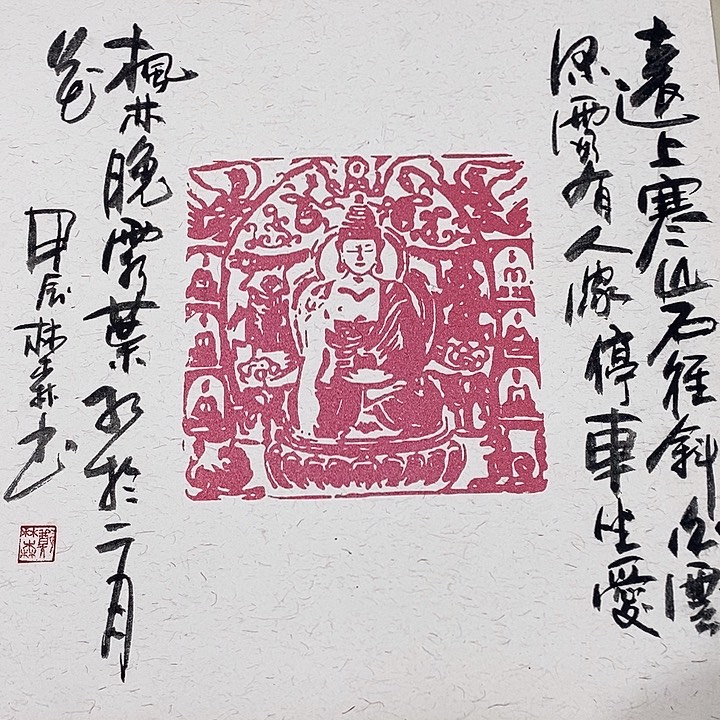 遠上寒山石徑斜白雲
深處有人家停車坐愛
楓林晚霜葉紅於二月
花
甲辰林森书